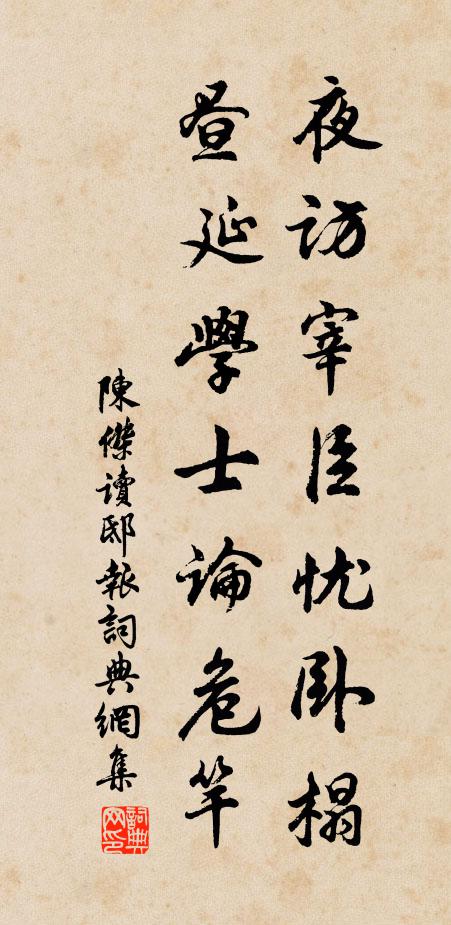 夜訪宰臣忧卧榻
昼延學士論危竿
陳傑讀邸報詞典網集
詞典网印